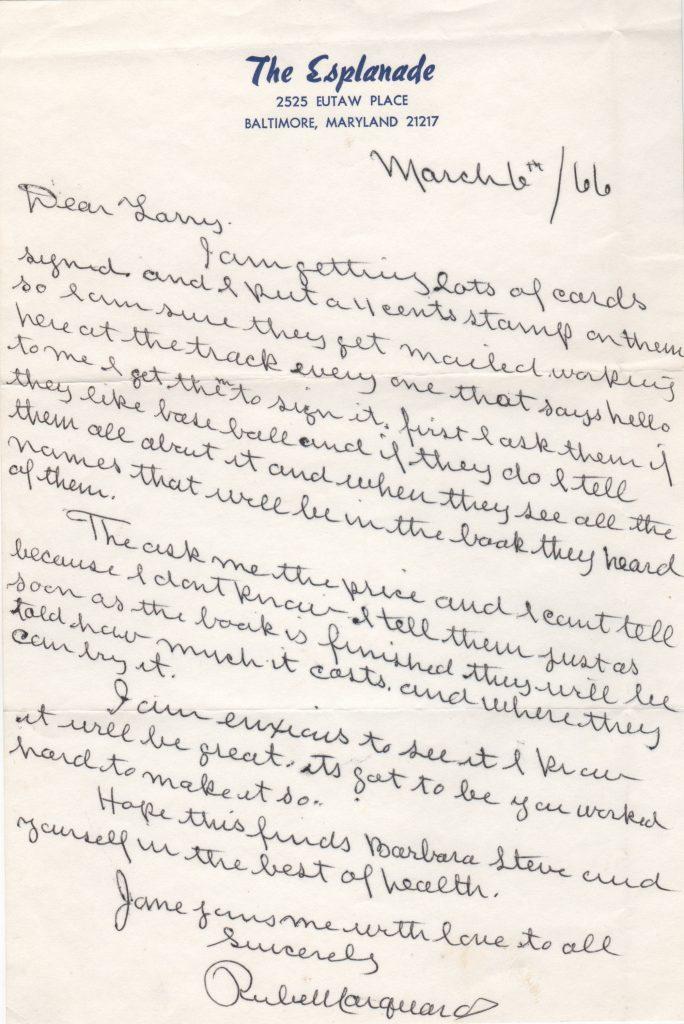 The Esplanade
2525 EUTAW PLACE
BALTIMORE, MARYLAND 21217
March 6th/66
Dear Larry.
I am getting lots of cards
signed. and I put a 4 cents stamp on them
so I am sure they get mailed. working
here at the track every one that says hello
to me I get them to sign it. first I ask them if
they like base ball and if they do I tell
them all about it and when they see all the
names that will be in the book they heard
of them.
The ask me the price and I cant tell
because I dont know. I tell them just as
soon as the book is finished they will be
told how much it costs. and where they
can buy it.
I am enxious to see it I know
it will be great. its got to be you worked
hard to make it so..
Hope this finds Barbara Steve and
yourself in the best of health.
Jane joins me with love to all
Sincerely
Rube Marquard